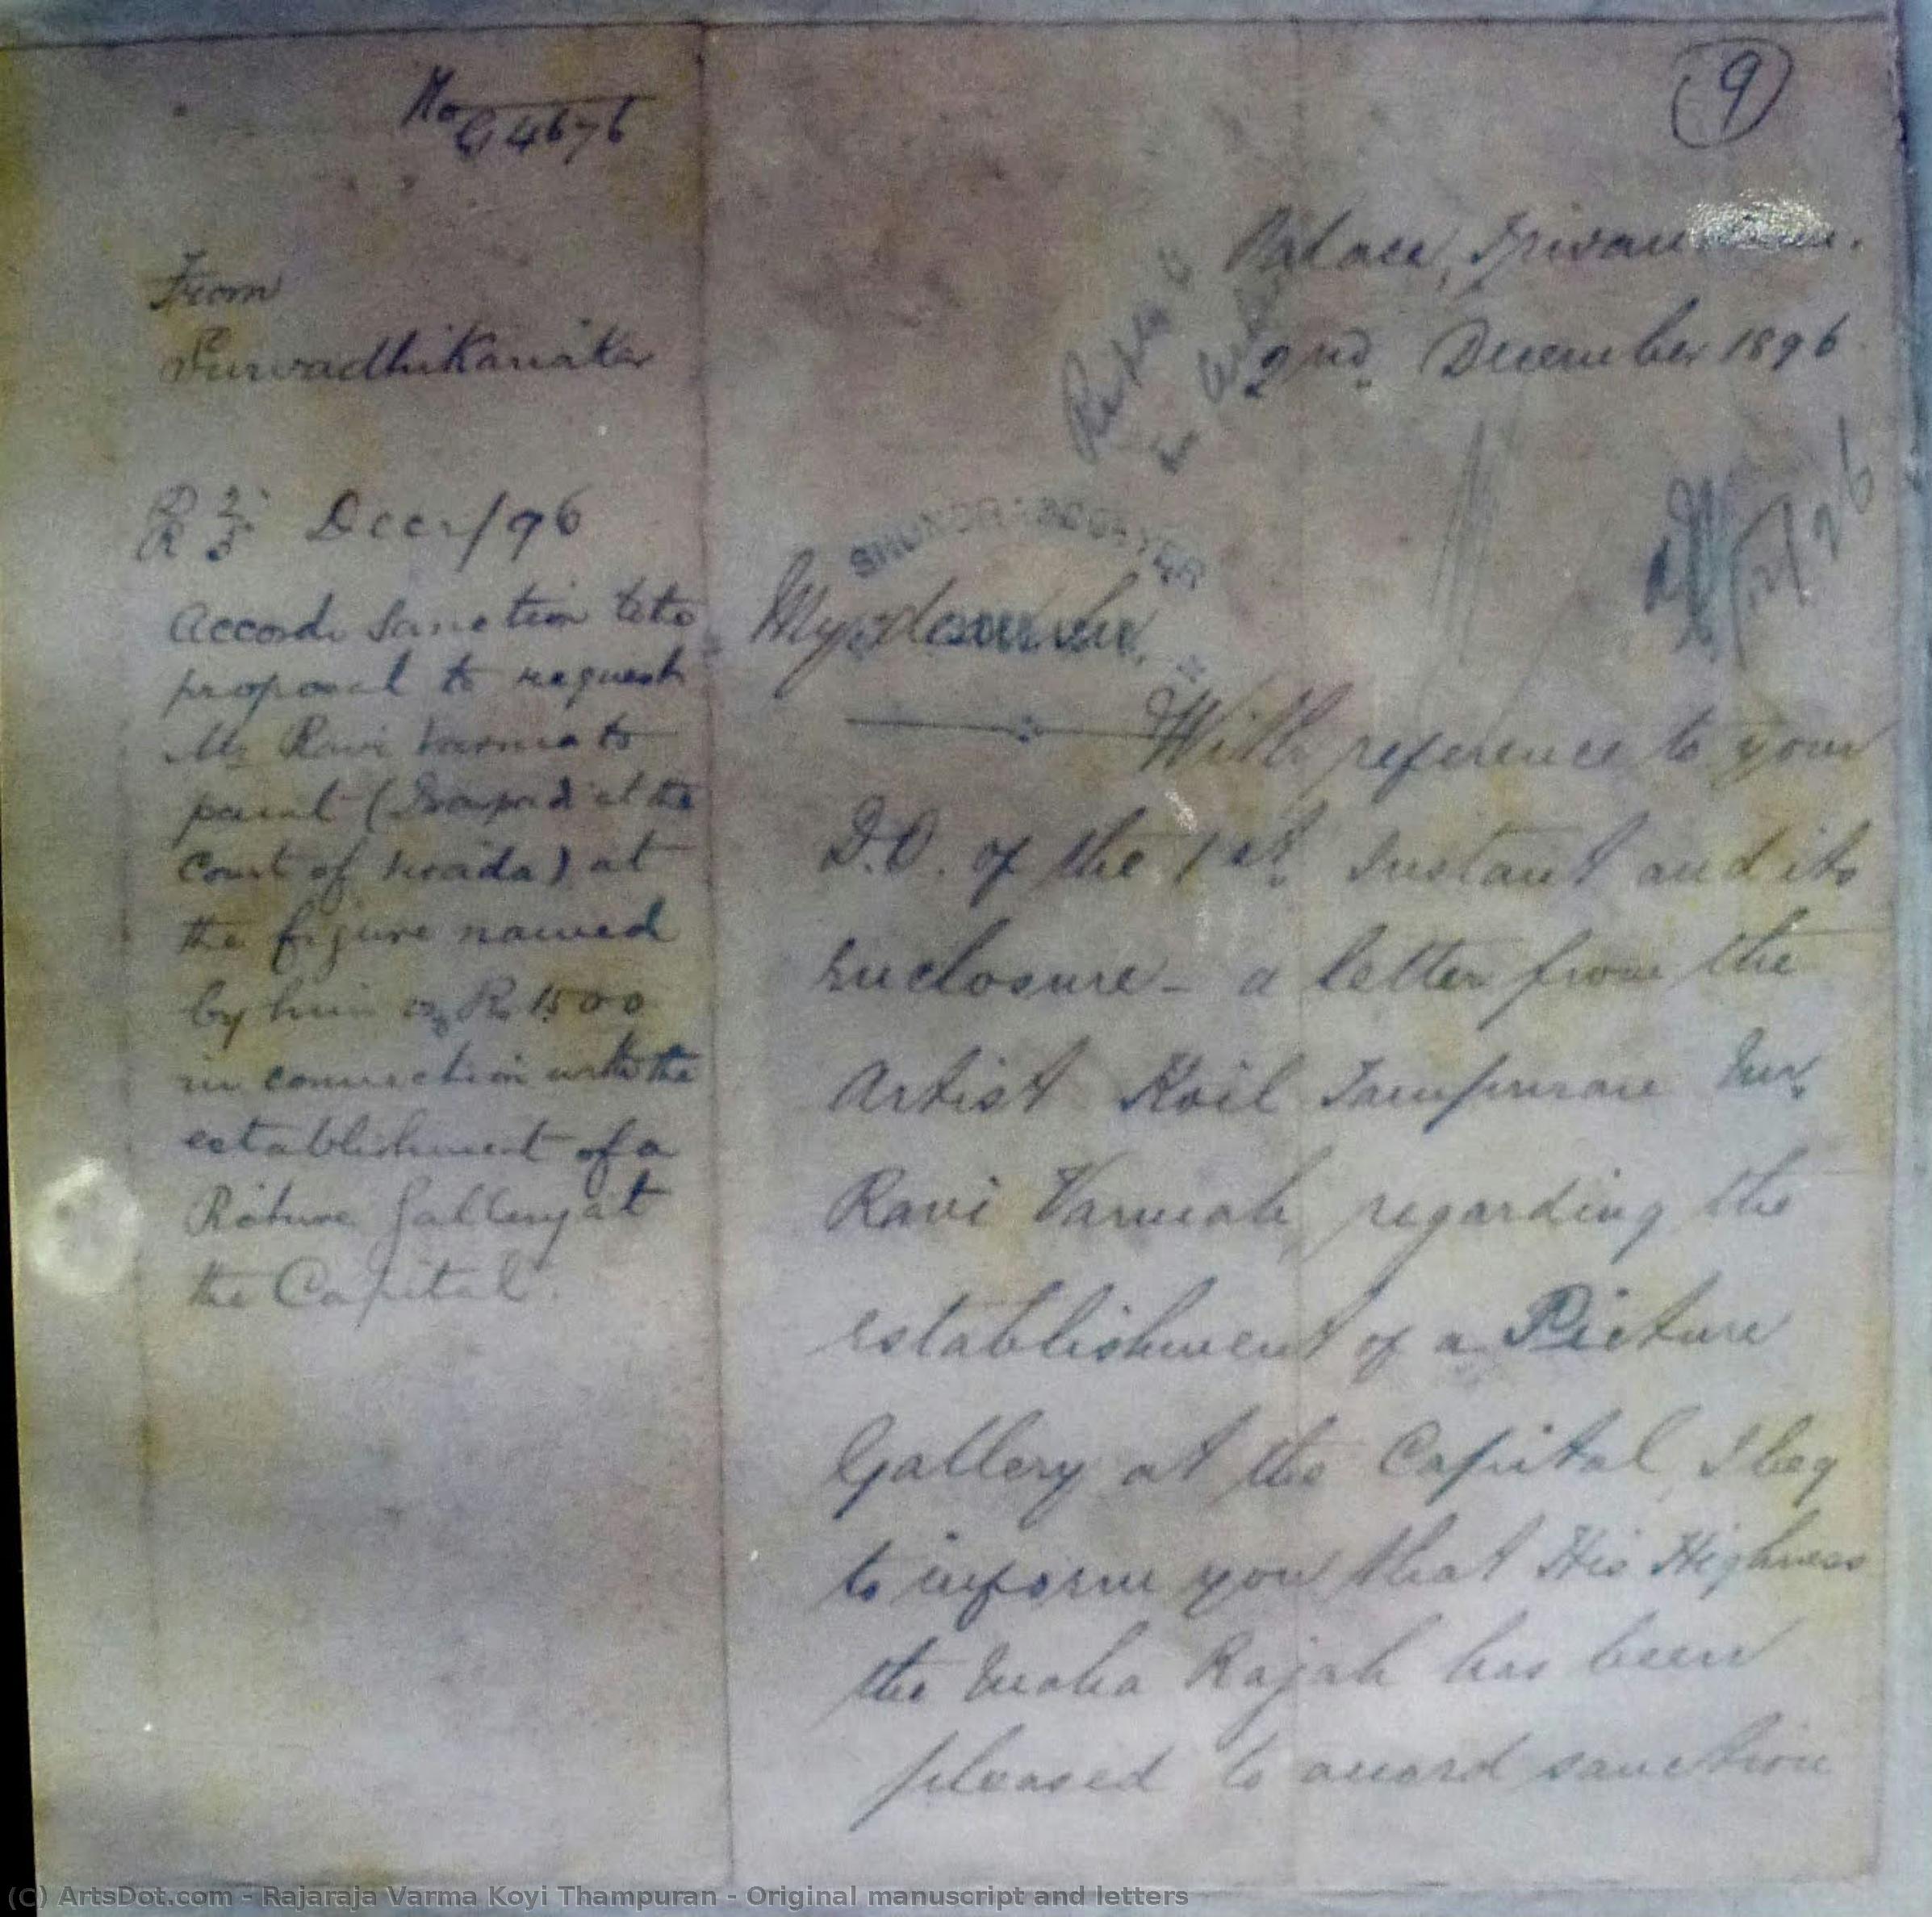 No G4676
9
From
Survadhikariakar
D 2
R 3 Decr/96
Accords Sanction to the
proposal to request
Mr Ravi Varma to
paint (Draupadi at the
Court of Virada) at
the figure named
by him Rs 1500
in connection with the
establishment of a
Picture Gallery at
the Capital.
Palace,
2nd December 1896.
My dear
With reference to your
D.O. of the 1st Instant and its
Enclosure - a letter from the
Artist Koil Tampuran Mr.
Ravi Varmah, regarding the
establishment of a Picture
Gallery at the Capital, I beg
to inform you that His Highness
the Maha Rajah has been
pleased to award sanction
(C) ArtsDot.com - Rajaraja Varma Koyi Thampuran - Original manuscript and letters